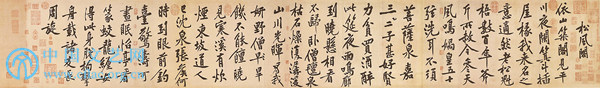 松風閣
依山築閣見平
川夜闌箕斗插
屋椽我來名之
意適然老松魁
梧數百年斧
斤所赦今參天
風鳴媧皇五十
弦洗耳不須
菩薩泉嘉
二三子甚好賢
力貧買酒醉
此筵夜雨鳴廊
到曉懸相看
不歸臥僧氈泉
枯石燥復潺湲
山川光輝為我
妍野僧旱
飢不能饘曉
見寒溪有炊
煙東坡道人
已沈泉張侯何
時到眼前釣
臺驚濤可
晝眠怡亭看
篆蛟龍纏安
得此身脫拘攣
舟載諸友長
周旋
中国文艺网